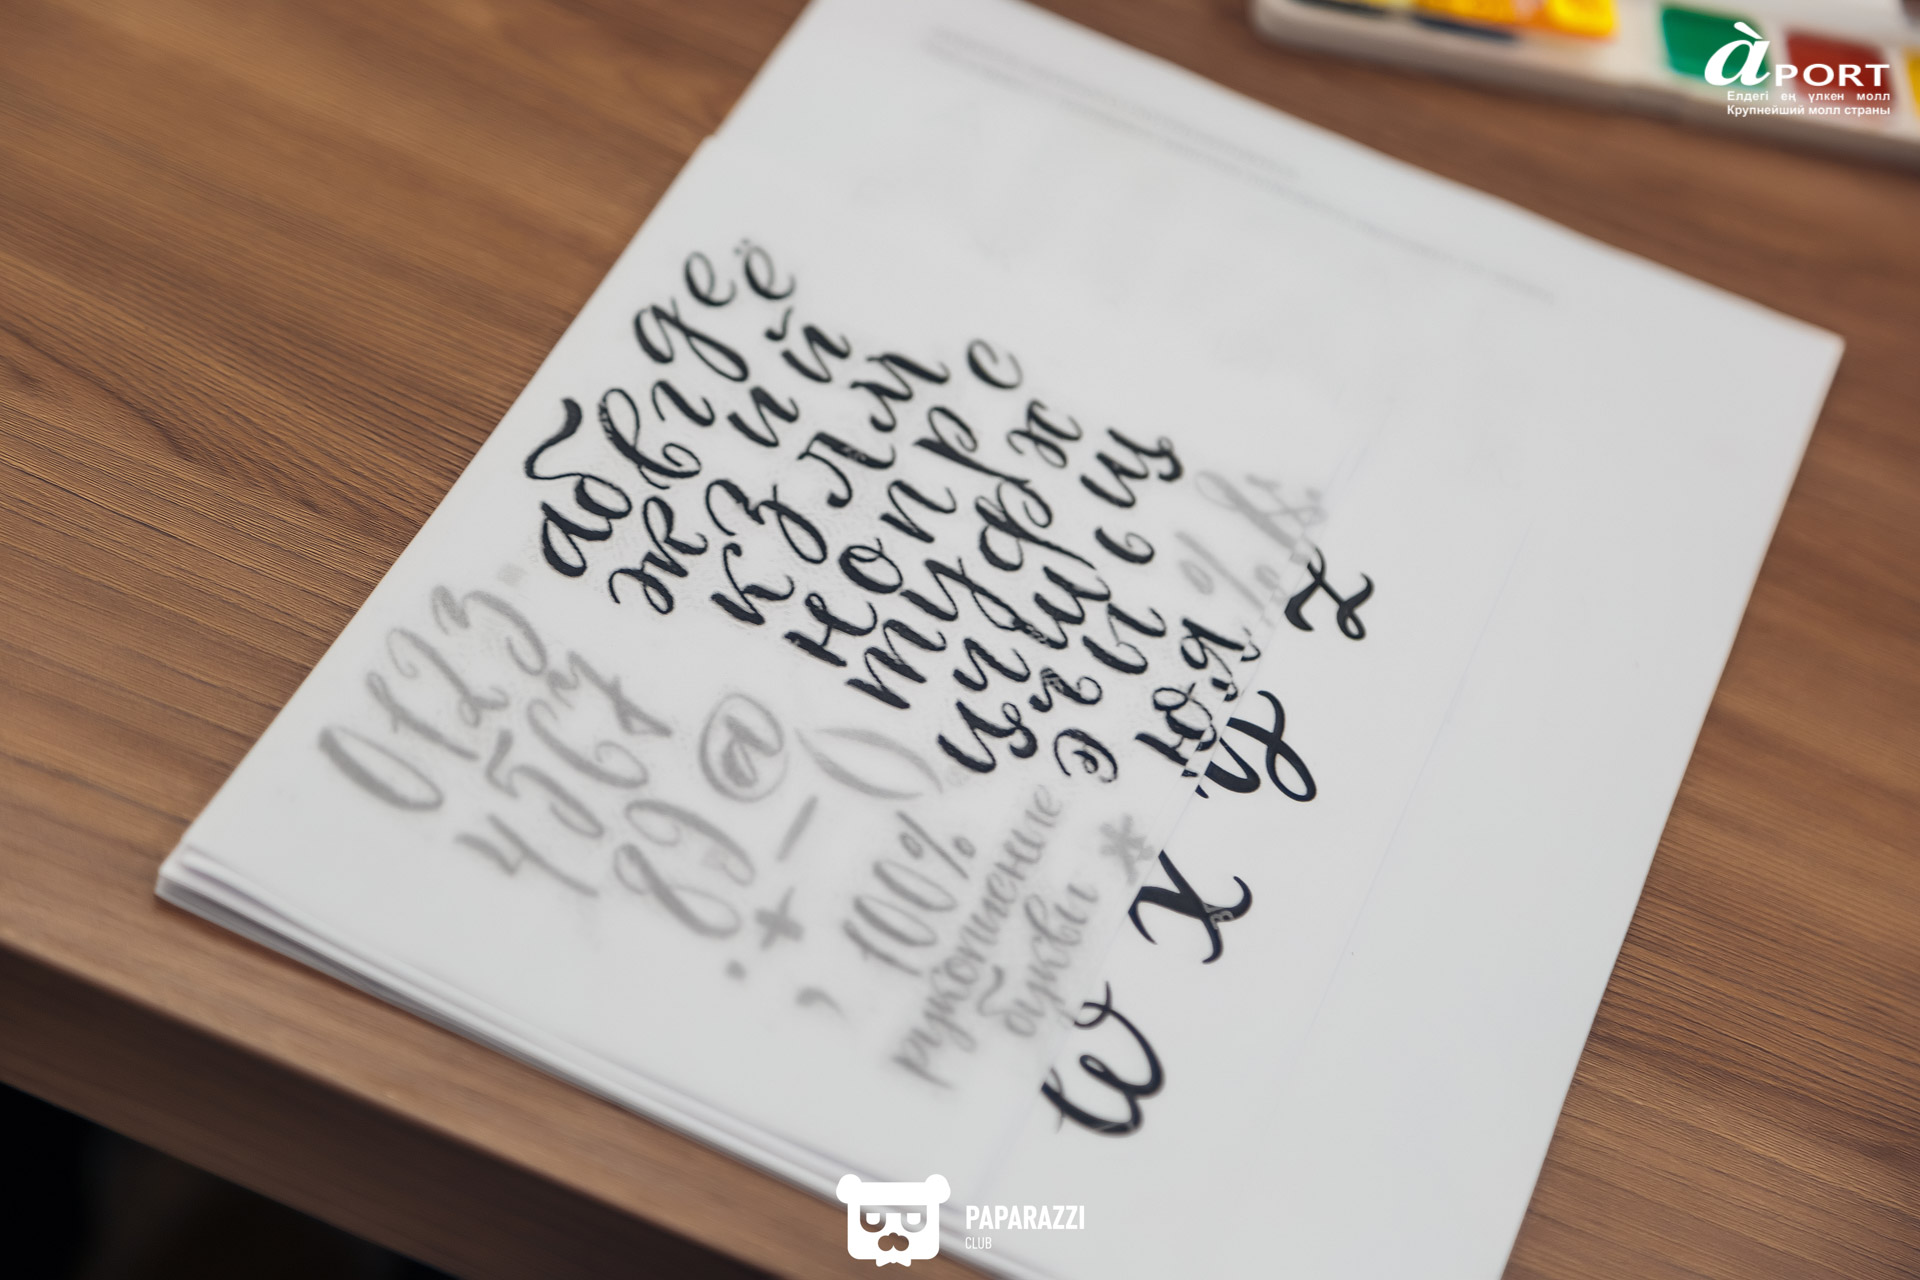 àPORT
Елдегі ең үлкен молл
Крупнейший молл страны
абвгдеё
жзий
клм
нопрс
туфх
цчшщ
ъыь
эюя
0123
4567
89
@ ()
+ –
. ,
100%
рукописные
буквы *
w x y z
PAPARAZZI
CLUB